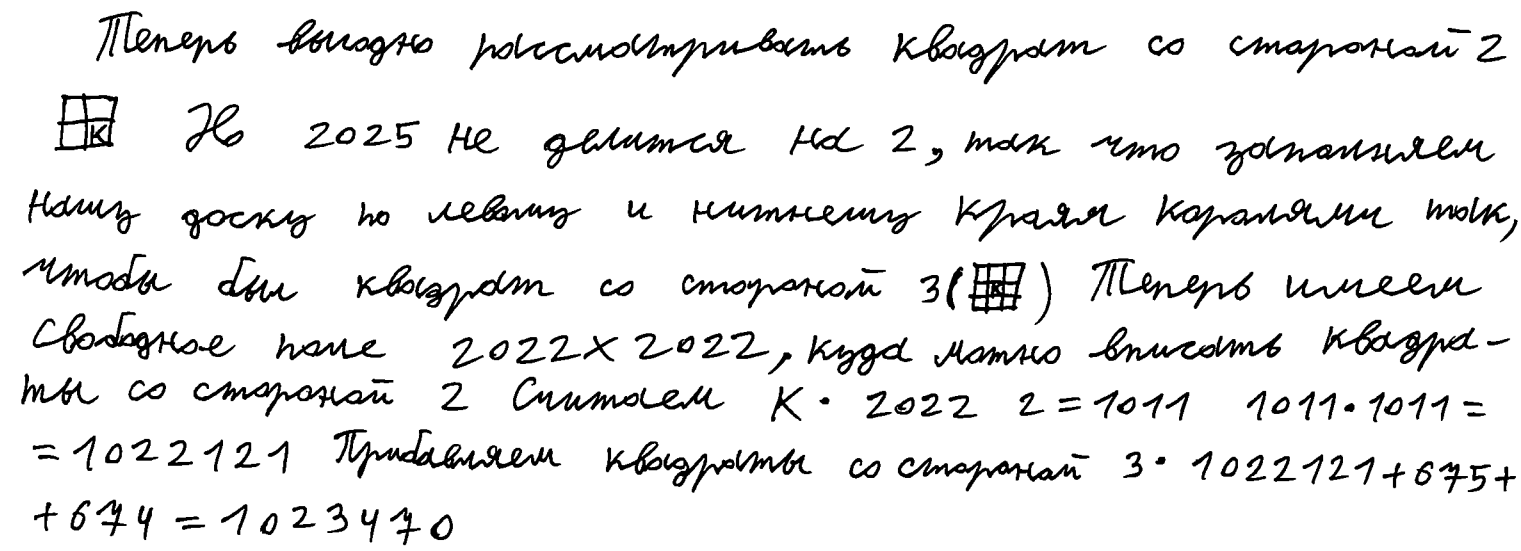 Теперь выгодно рассматривать квадрат со стороной 2
К Но 2025 не делится на 2, так что заполняем
нашу доску по левому и нижнему краям королями так,
чтобы был квадрат со стороной 3(К) Теперь имеем
свободное поле 2022×2022, куда можно вписать квадра-
ты со стороной 2 Считаем К. 2022 2=1011 1011·1011=
=1022121 Прибавляем квадраты со стороной 3. 1022121+675+
+674=1023470